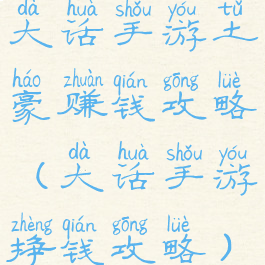 dà huà shǒu yóu tǔ
大话手游土
háo zhuàn qián gōng lüè
豪赚钱攻略
dà huà shǒu yóu
（大话手游
zhèng qián gōng lüè
挣钱攻略）